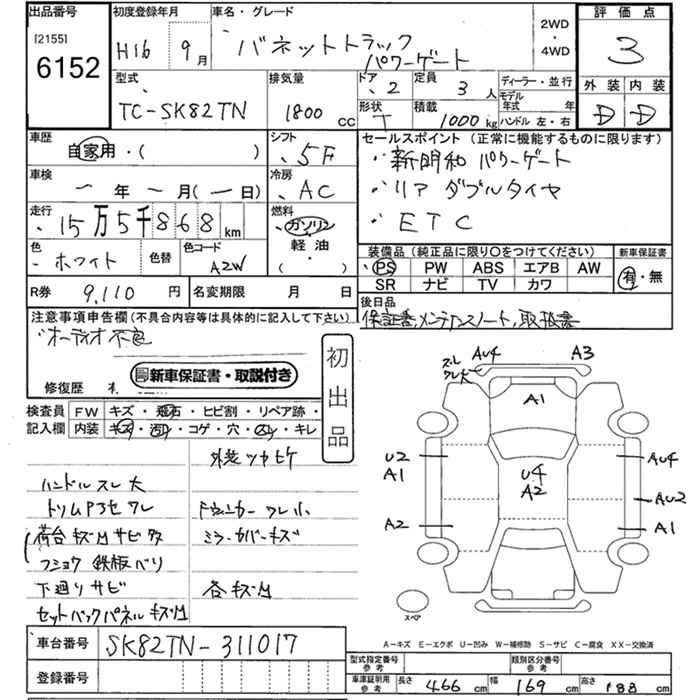 出品番号
[2155]
6152
初度登録年月
H16 9月
車名・グレード
バネットトラック
パワーゲート
2WD
・
4WD
評価点
3
外装 内装
D D
型式
TC-SK82TN
排気量
1800 cc
ドア
2
定員
3人
ディーラー・並行
モデル年式 年
ハンドル 左・右
形状
T
積載
1000 kg
車歴
自家用・( )
シフト
5F
セールスポイント (正常に機能するものに限ります)
新明和 パワーゲート
リア ダブルタイヤ
ETC
車検
ー年ー月(ー日)
冷房
AC
走行
15万5千868 km
燃料
ガソリン
軽油
( ・ )
色
ホワイト
色替
色コード
A2W
装備品 (純正品に限り○をつけてください)
PS PW ABS エアB AW
SR ナビ TV カワ
新車保証書
有・無
R券 9,110 円
名変期限 月 日
後日品
保証書,メンテナンスノート,取扱書
注意事項申告欄(不具合内容等は具体的に記入して下さい)
オーディオ不良
新車保証書・取説付き
修復歴
初出品
検査員記入欄
FW キズ・飛石・ヒビ割・リペア跡・
内装 キズ・汚れ・コゲ・穴・スレ・キレ
外装ツカヒケ
ハンドルスレ大
トリムP3セワレ
荷台キズMサビ多
フショウ 鉄板ベリ
下廻りサビ
セットバックパネルキズM
ミラーカバーキズ
各キズM
ズレ
ワレ大
AU4
A3
A1
U2
A1
U4
A2
AU4
AU2
A2
A1
スペア
A-キズ E-エクボ U-凹み W-補修跡 S-サビ C-腐食 XX-交換済
車台番号
SK82TN-311017
登録番号
型式指定番号 参考
類別区分番号 参考
車庫証明用 参考
長さ 466 cm
幅 169 cm
高さ 188 cm